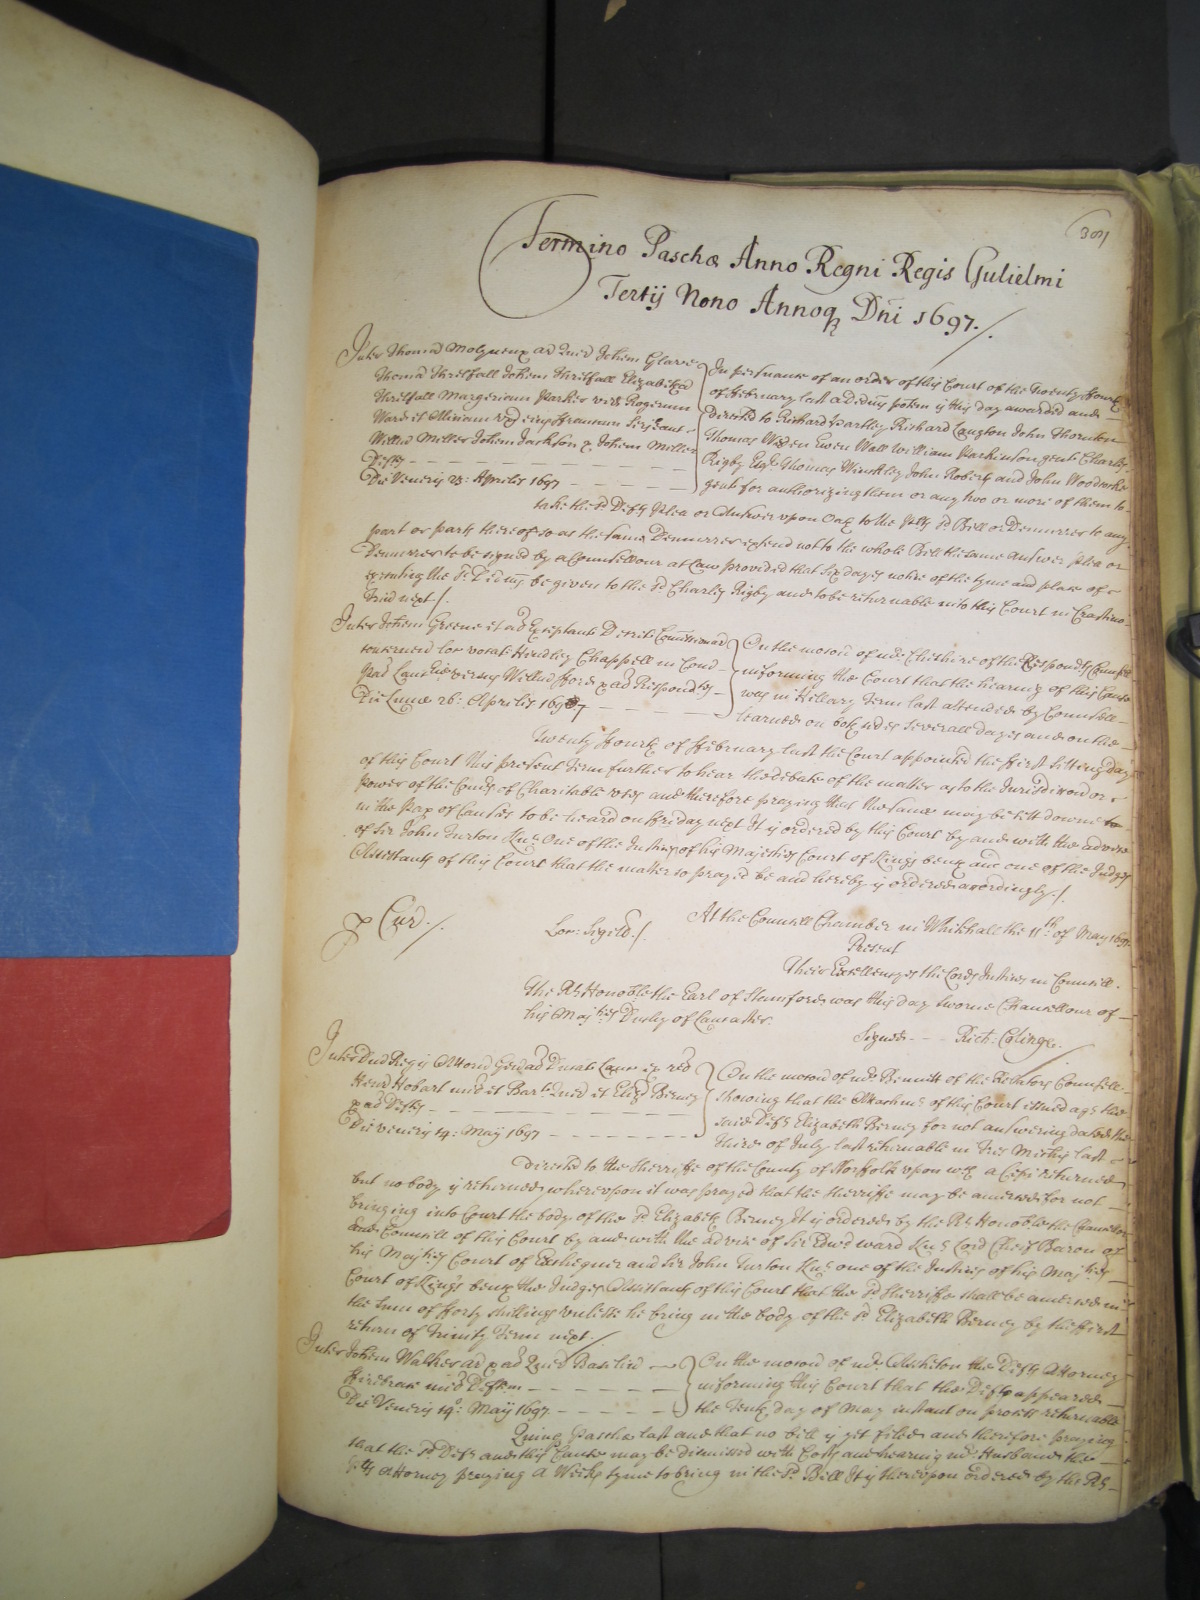 301
Termino Paschæ Anno Regni Regis Gulielmi
Tertij Nono Annoq Dñi 1697./
Inter Thomā Molyneux ar Quer Johem Glave
Thomā Threlfall Johem Threlfall Elizabethā
Threlfall Margeriam Parker vid Rogerum
Ward et Miriam
Willm Miller Johem Jackson & Johem Miller
Defts
Die Veneris 23: Aprilis 1697
In persuance of an order of this Court of the Twenty fourth
of ffebruary last a Dedimus potem is this day awarded and
directed to Richard Hartley Richard Langton John Thornton
Thomas Ewen Wall William Parkinson gent Charles
Rigby Esqr Thomas Winckley John Roberts and John Woodcocke
gents for authorizing them or any two or more of them to
take the sd Defts Plea or Answer upon Oath to the Plts sd Bill or Demurrer to any
part or parts thereof so as the same Demurrer extend not to the whole Bill the same Answer plea or
Demurrer to be signed by a Counsellour at Law provided that six dayes notice of the tyme and place of
executing the sd Dedimus be given to the sd Charles Rigby and to be returnable into this Court in Crastino
Trin next /.
Inter Johem Greene et al Exceptants Decreti Commissionar
concernen Hindley Chappell in Com
Pal Lanc versus Willm fford & al Respondtes
Die Lunæ 26: Aprilis 1697
On the motion of mr Cheshire of the Respondts Councell
informing the Court that the hearing of this Cause
was in Hillary Terme last attended by Councell
learned on both sides severall dayes and on the
Twenty fourth of ffebruary last the Court appointed the first sitting day
of this Court this present Terme further to hear the debate of the matter as to the Jurisdiccion or
power of the Comrs of Charitable uses and therefore praying that the same may be sett downe
in the Paper of Causes to be heard on ffriday next It is ordered by this Court by and with the advice
of Sir John Turton Knt One of the Justices of his Majesties Court of Kings bench and one of the Judges
Assistants of this Court that the matter so prayed be and hereby is ordered accordingly./.
p Cur./
At the Councill Chamber in Whitehall the 11th of May 1697
Present
Their Excellencyes the Lords Justices in Councill.
The Rt Honoble the Earl of Stamford was this day sworne Chancellour of
his Majties Dutchy of Lancaster.
Signed - - - Rich: Colinge.
Henr Hobart mil et Barrt Quer et Eliz Berney
& al Defts
Die Veneris 14: Maij 1697
On the motion of mr Bennitt of the Relators Councell
showing that the Attachmt of this Court issued agt the
said Deft Elizabeth Berney for not answering dated the
third of July last returnable in Tres Michis last
directed to the Sherriffe of the County of Norfolk upon wch a Cepi returned
but no body is returned whereupon it was prayed that the sherriffe may be amerced for not
bringing into Court the body of the sd Elizabeth Berney It is ordered by the Rt Honoble the Chancellor
and Councill of this Court by and with the advice of Sir Edwd Ward Knt Lord Cheif Baron of
his Majties Court of Exchequer and Sir John Turton Knt one of the Justices of his Majties
Court of Kings bench the Judges Assistants of this Court that the sd Sherriffe shall be amerced in
the sum of fforty shillings unlesse he bring in the body of the sd Elizabeth Berney by the first
return of Trinity Terme next./
Inter Johem Walker ar & al Quer Basiliu
ffirebrace mil Deftem
Die Veneris 14: Maij 1697
On the motion of mr Assheton the Defts Attorney
informing this Court that the Deft appeared
the Tenth day of May instant on process returnable
Quinq Paschæ last and that no bill is yet filed and therefore praying
that the sd Deft and this Cause may be dismissed with Costs and hearing mr Husband the
Plts Attorney praying a Weeks tyme to bring in the sd Bill It is thereupon ordered by the Rt